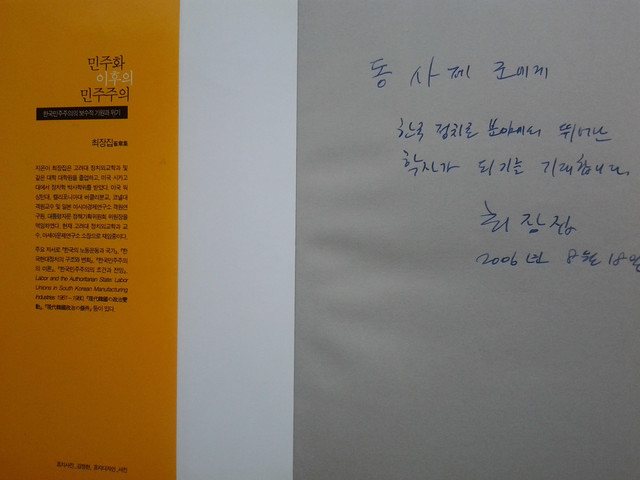 민주화
이후의
민주주의
한국민주주의의 보수적 기원과 위기
최장집
지은이 최장집은 고려대 정치외교학과 및
같은 대학 대학원을 졸업하고, 미국 시카고
대에서 정치학 박사학위를 받았다. 미국 워
싱턴대, 캘리포니아대 버클리분교, 코넬대
객원교수 및 일본 아시아경제연구소 객원연
구원, 대통령자문 정책기획위원회 위원장을
역임하였다. 현재 고려대 정치외교학과 교
수, 아세아문제연구소 소장으로 재임중이다.
주요 저서로 『한국의 노동운동과 국가』, 『한
국현대정치의 구조와 변화』, 『한국민주주의
의 이론』, 『한국민주주의의 조건과 전망』,
Labor and the Authoritarian State: Labor
Unions in South Korean Manufacturing
Industries 1961-1980, 『現代韓國の政治變
動』, 『現代韓國政治の條件』 등이 있다.
표지사진_강영원, 표지디자인_서진
동 사제 로에게
한국 정치로 분야에서 뛰어난
학자가 되기를 기대합니다.
최장집
2006년 8월 18일